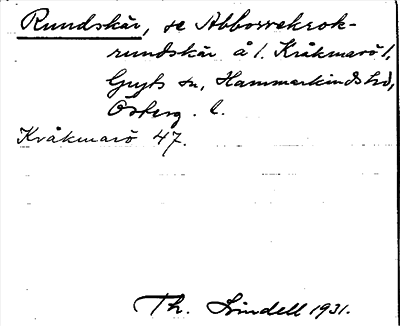 Rundskär, se Abborrekrok-
rundskär å l. Kråkmarö l,
Gryts sn, Hammarkinds hd,
Österg. l.
Kråkmarö 47.
Th. Lindell 1931.